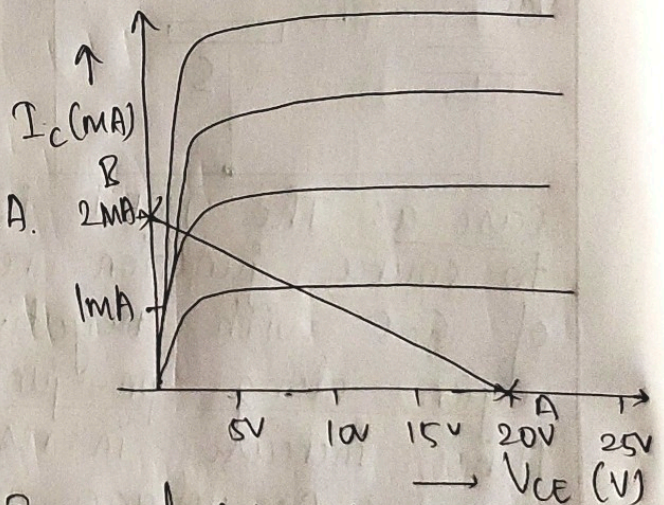 Ic (MA)
B
A. 2MA
1MA
A
5V 10V 15V 20V 25V
VCE (V)